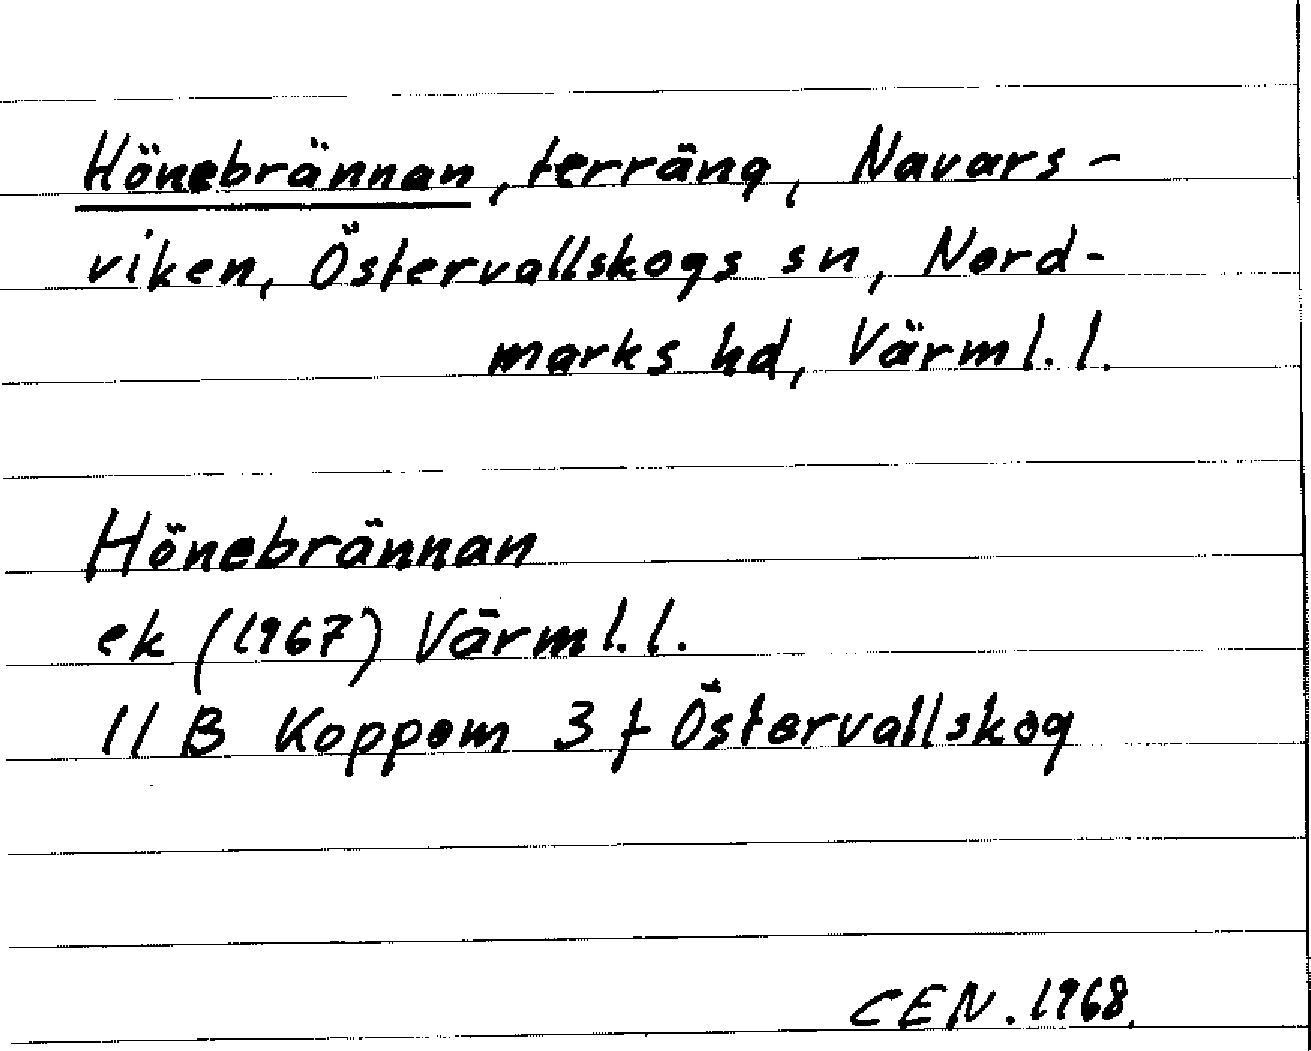 Hönebrännan, terräng, Navars-
viken, Östervallskogs sn, Nord-
marks hd, Värml. l.
Hönebrännan
ek (1967) Värml. l.
11 B Koppom 3 f Östervallskog
CEN. 1968.